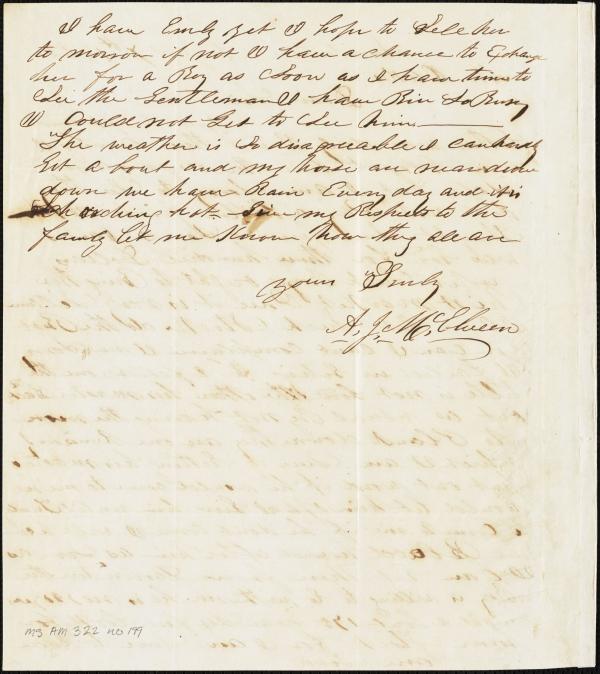 I have Emly yet I hope to Sele her
to morrow if not I have a chance to Exchange
her for a Boy as Soon as I have time to
See the Gentleman I have Bin So Busy
I Could not Get to See him
The weather is So disagreeable I can hardly
Get a bout and my horse are near done
down we have Rain Every day and it is
Schorching hot Give my Respects to the
family let me Know how they all are
yours Truly
A. J. McElveen
MS AM 322 no 199